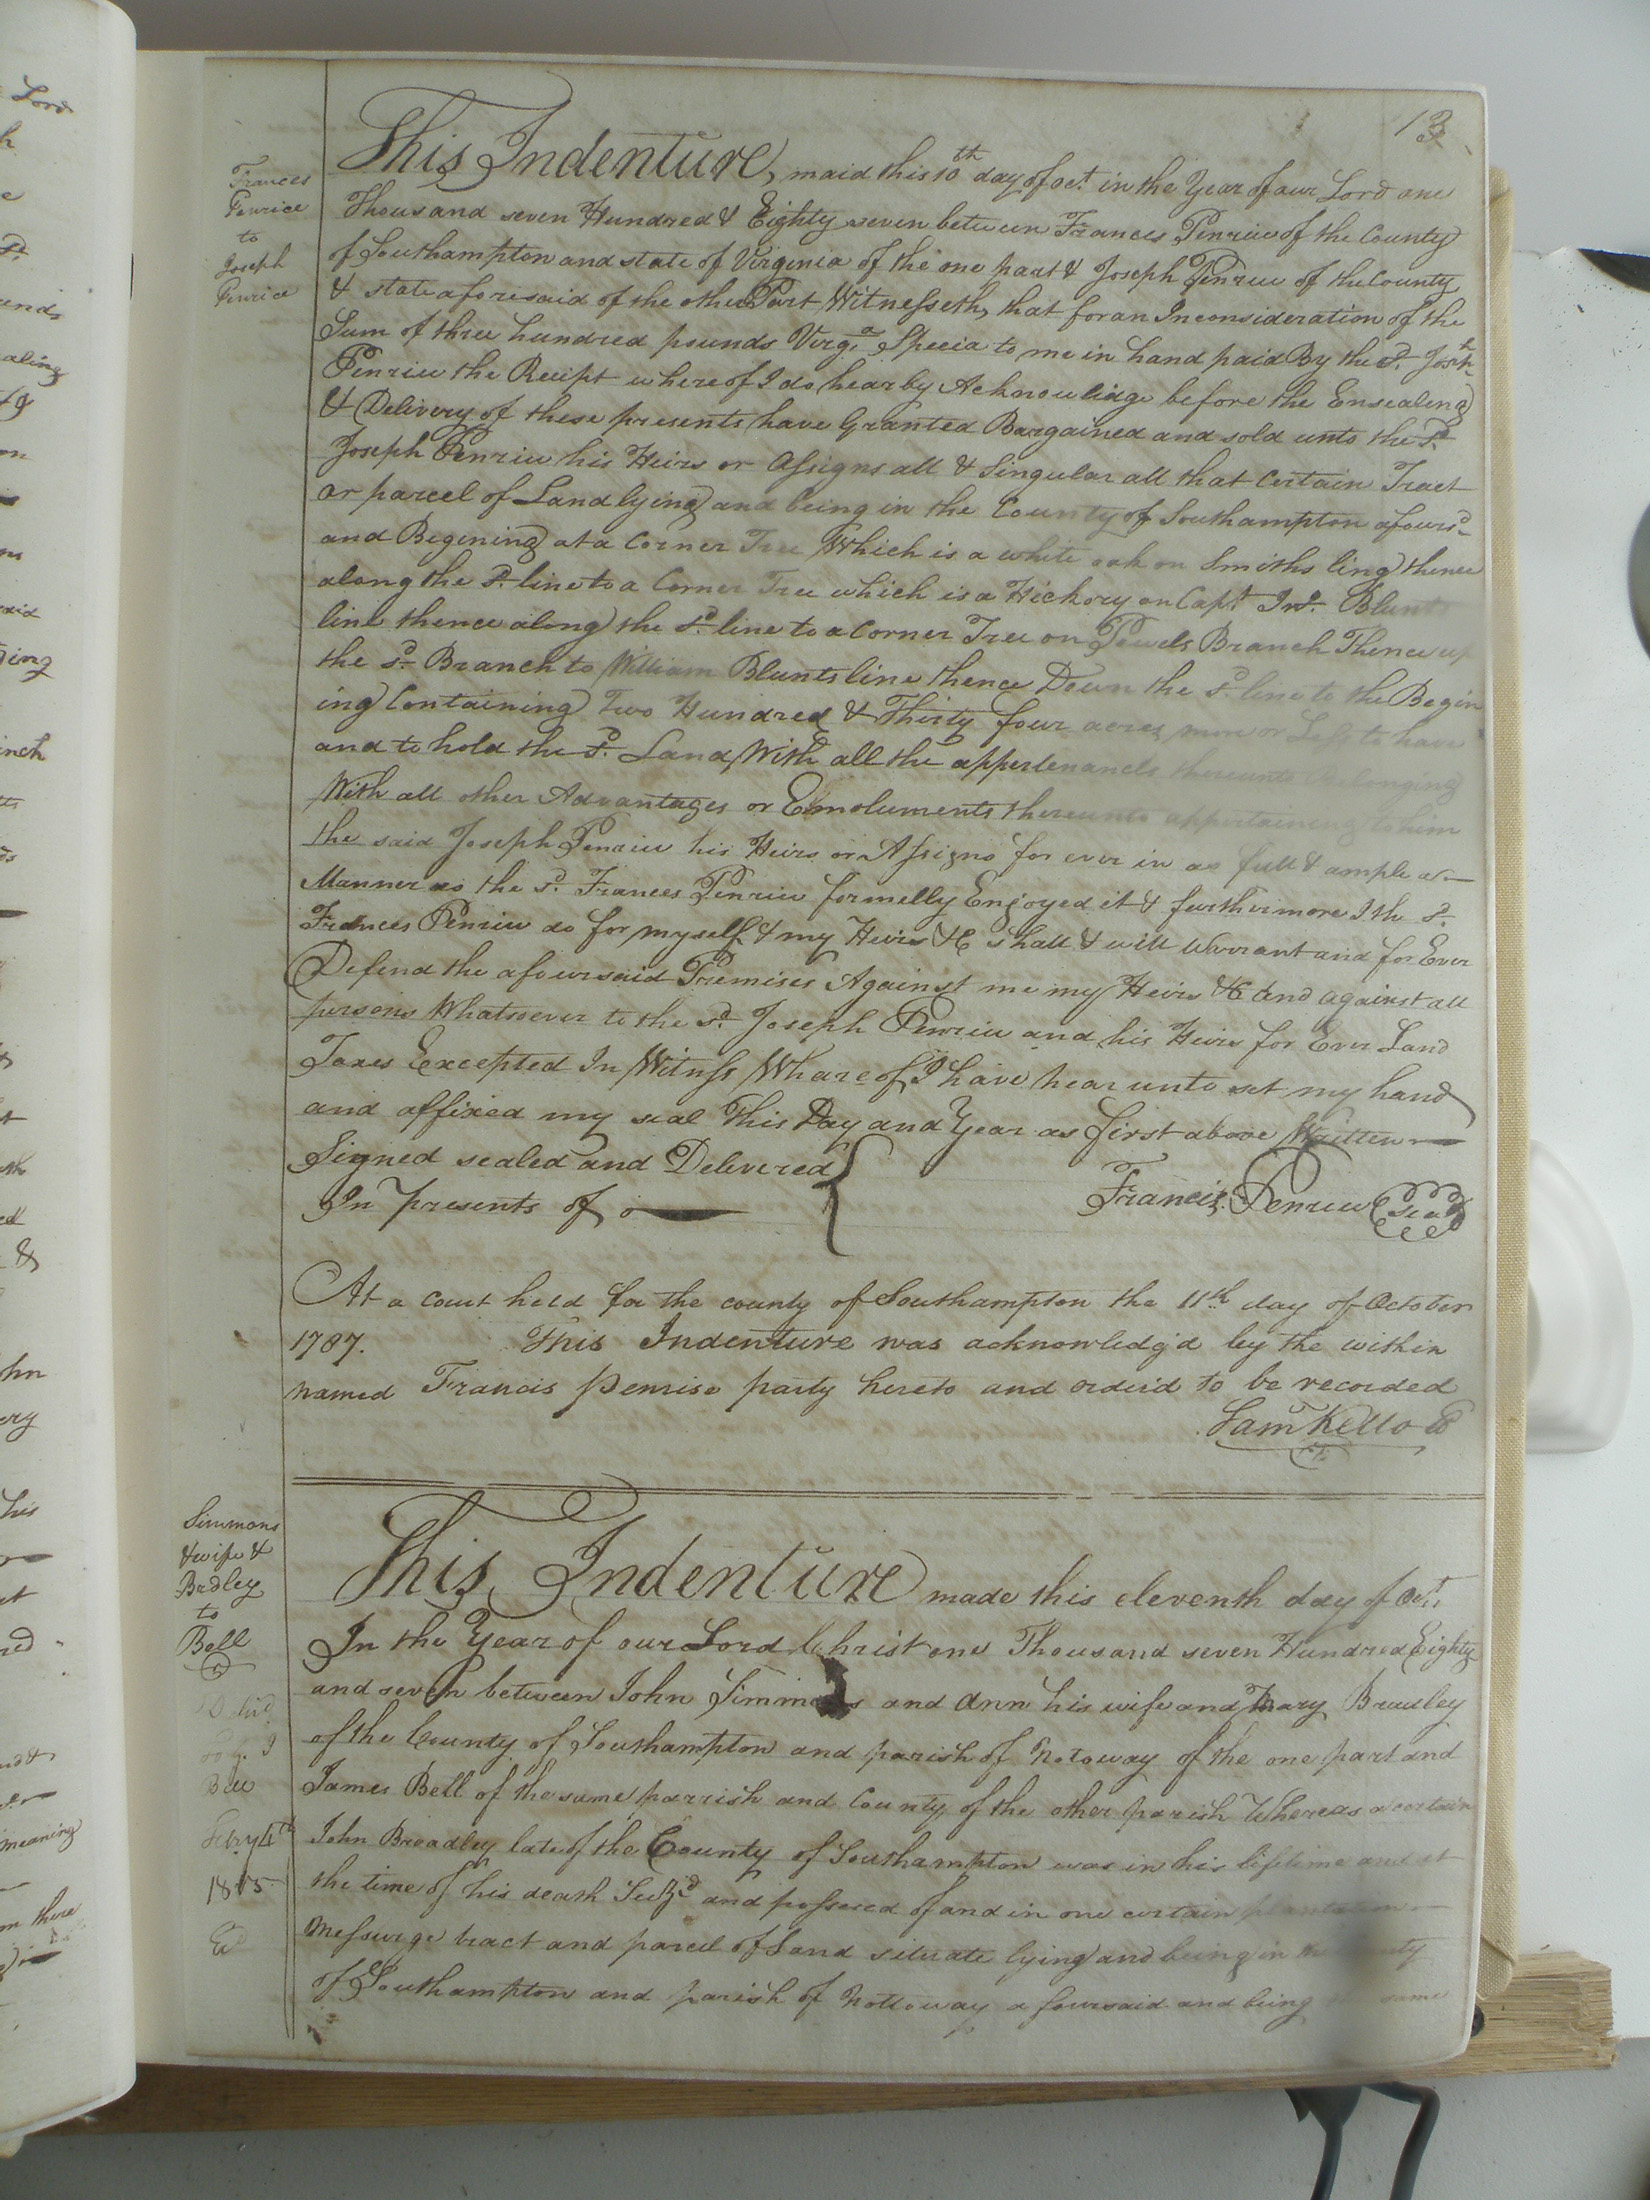 13
Frances
Penrice
to
Joseph
Penrice
This Indenture, maid this 10th day of oct. in the Year of our Lord one
Thousand seven Hundred & Eighty seven between Frances Penrice of the County
of Southampton and state of Virginia of the one part & Joseph Penrice of the County
& state aforesaid of the other Part Witnesseth, that for an Inconsideration of the
Sum of three hundred pounds Virga. Specia to me in hand paid By the sd. Josh.
Penrice the Recipt whereof I do hearby Acknowlidge before the Ensealing
& Delivery of these presents have Granted Bargained and sold unto the sd.
Joseph Penrice his Heirs or Assigns all & Singular all that Certain Tract
or parcel of Land lying and being in the County of Southampton afoursd.
and Begining at a Corner Tree Which is a white oak on Smiths ling thence
along the sd. line to a Corner Tree which is a Hickory on Capt. Jno. Blunts
line thence along the sd. line to a Corner Tree on Branch Thence up
the sd. Branch to William Blunts line thence Down the sd. line to the Begin
ing Containing Two Hundred & Thirty four acres more or Less to have
and to hold the sd. Land With all the appertenancls thereunto Belonging
With all other Advantages or Emoluments thereunto appertaining to him
the said Joseph Penrice his Heirs or Assigns for ever in as full & ample a
Manner as the sd. Frances Penrice formelly Enjoyed it & furthermore I the sd.
Frances Penrice do for myself & my Heirs &C shall & will Warrant and for Ever
Defend the afoursaid Premises Against me my Heirs &C And against all
persons Whatsoever to the sd. Joseph Penrice and his Heirs for Ever Land
Taxes Excepted In Witness Whareof I have hear unto set my hand
and affixed my seal This Day and Year as first above Written
Signed sealed and Delivered
In presents of
Francis Penrice Seal
At a court held for the county of Southampton the 11th day of October
1787. This Indenture was acknowledg'd by the within
named Francis Penrise party hereto and order'd to be recorded
Saml. Kello
Simmons
& wife &
Bradley
to
Bell
This Indenture made this eleventh day of Oct.
In the Year of our Lord Christ one Thousand seven Hundred Eighty
and seven between John Simmons and Ann his wife and Mary Bradley
of the County of Southampton and parish of Notoway of the one part and
James Bell of the same parrish and County of the other parish Whereas a certain
John Broadley late of the County of Southampton was in his lifetime and at
the time of his death Seiz'd and possesed of and in one certain plantation
Messurge tract and parcel of Land situate lying and being in the County
of Southampton and parish of Nottoway a foursaid and being the same
Deliv'd
Bell
Febry 4th
1805